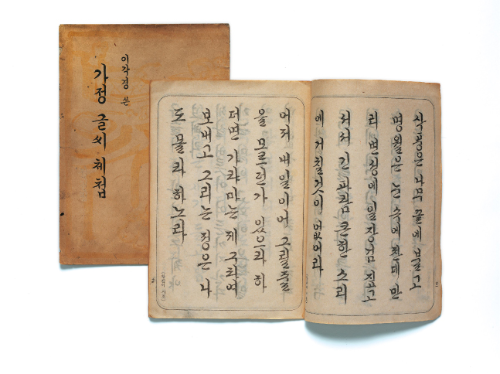 이각경 쓴
가정 글씨 체첩
삭풍은 나무 끝에 불고
명월은 눈 속에 찬데 만
리 변성에 일장검 짚고
서서 긴 파람 큰 한 소리
에 거칠 것이 없어라
어저 내 일이여 그릴 줄
을 모르던가 있으라 하
더면 가랴마는 제 구타여
보내고 그리는 정은 나
도 몰라 하노라